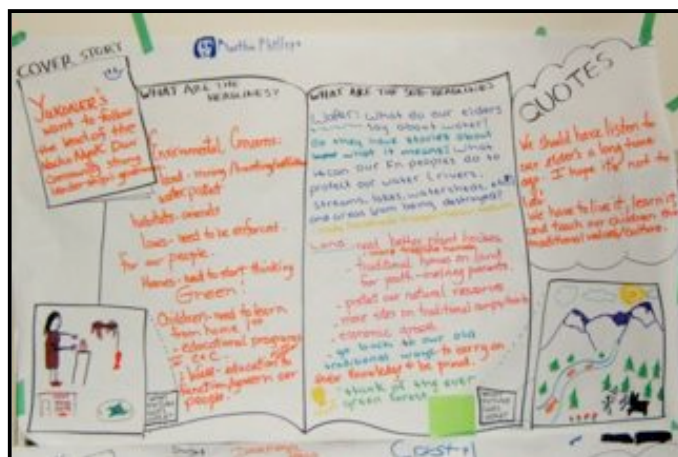 Martha Phillips
COVER STORY
YUKONER'S
want to follow
the lead of the
Nacho Nyak Dun
community strong
leadership
WHAT ARE THE
HEADLINES?
Enviromental Concerns:
land - mining /
water protect
habitats - animals
laws - need to be enforcent
for our people.
Homes - need to start thinking
Green!
Children - need to learn
from home 1st
- educational programs
- education to
function/govern our
people.
WHAT ARE THE SUB-HEADLINES
Water: What do our elders
say about water?
do they have stories about
what it means? What
can our Fn peoples do to
protect our water (rivers,
streams, lakes, watersheds, etc)
and areas from being destroyed?
Land - need better plant
- traditional homes on land
for youth -
- protect our natural resource
- more sites on traditional
- economic growth
- go back to our old
traditional ways to carry on
knowledge & to be proud.
- think of the ever
green forest
QUOTES
We should have listen to
our elder's a long time
ago. I hope it's not too
late.
We have to live it, learn it
and teach our children our
traditional values/culture.